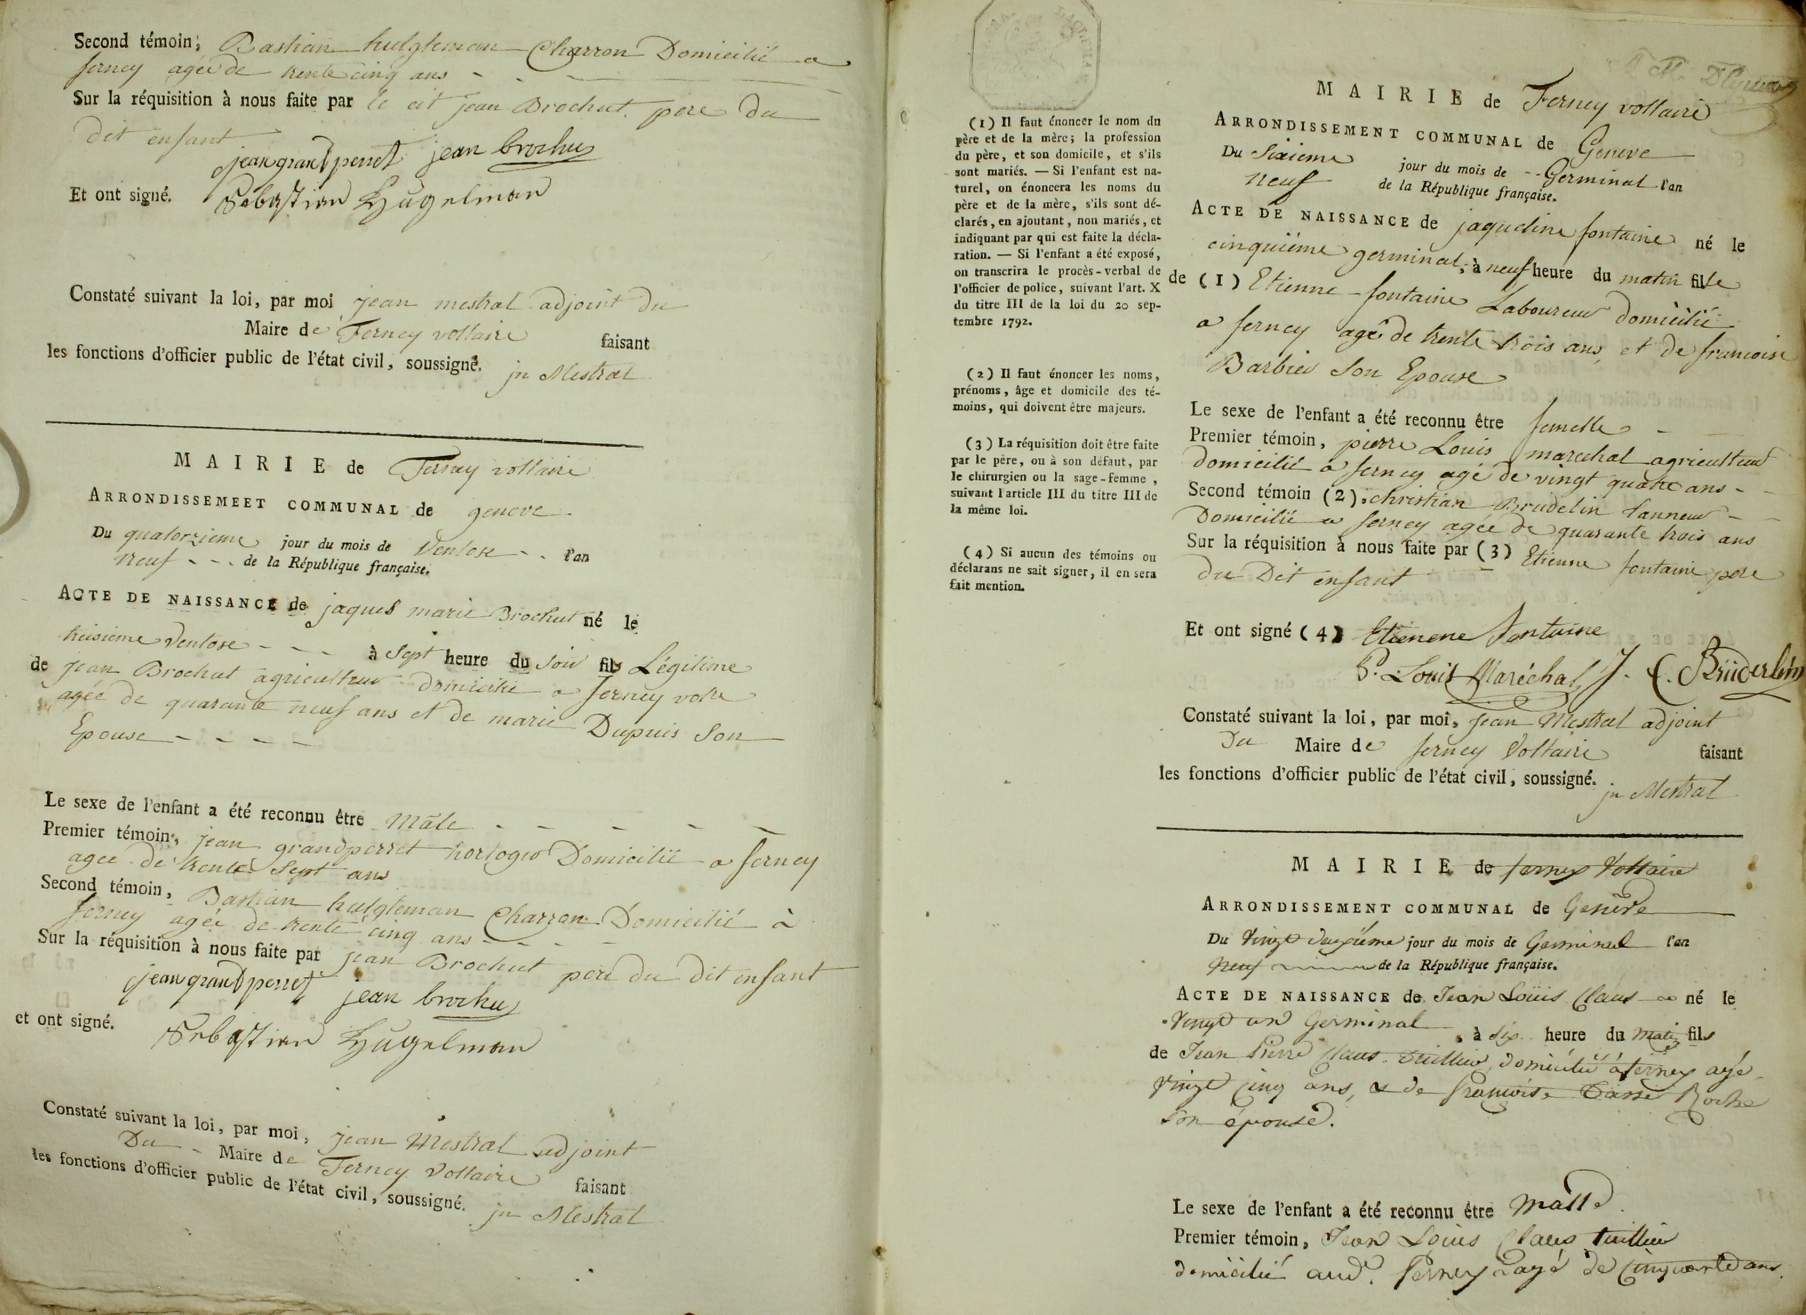 Second témoin; Bastian hulgleman Charron Domicilié a
ferney agée de trente cinq ans - - -
Sur la réquisition à nous faite par le cit jean Brochut pere du
dit enfant
jean grand perret jean brochu
Et ont signé. Sebastien Hugelman
Constaté suivant la loi, par moi jean mestral adjoint du
Maire de Ferney voltaire faisant
les fonctions d'officier public de l'état civil, soussigné. jn Mestral
MAIRIE de Ferney voltaire
ARRONDISSEMEET COMMUNAL de geneve
Du quatorzieme jour du mois de Ventose - - l'an
neuf - - - de la République française.
ACTE DE NAISSANCE de jaques marie Brochut né le
treisieme Ventose - - - à Sept heure du Soir fils Légitime
de jean Brochut agriculteur domicilié a ferney volre
agée de quarante neuf ans et de marie Dupuis Son
Epouse - - - -
Le sexe de l'enfant a été reconnu être Mâle - - - - -
Premier témoin, jean grandperret horloger Domicilié a ferney
agee de trente Sept ans
Second témoin, Bastian hulgleman Charron Domicilié à
ferney agée de trente cinq ans - - - -
Sur la réquisition à nous faite par jean Brochut pere du dit enfant
jean grand perret jean brochu
et ont signé. Sebastien Hugelman
Constaté suivant la loi, par moi, jean Mestral adjoint
Du - Maire de Ferney Voltaire faisant
les fonctions d'officier public de l'état civil, soussigné. jn Mestral
(1) Il faut énoncer le nom du
père et de la mère; la profession
du père, et son domicile, et s'ils
sont mariés. — Si l'enfant est na-
turel, on énoncera les noms du
père et de la mère, s'ils sont dé-
clarés, en ajoutant, non mariés, et
indiquant par qui est faite la décla-
ration. — Si l'enfant a été exposé,
on transcrira le procès-verbal de
l'officier de police, suivant l'art. X
du titre III de la loi du 20 sep-
tembre 1792.
(2) Il faut énoncer les noms,
prénoms, âge et domicile des té-
moins, qui doivent être majeurs.
(3) La réquisition doit être faite
par le père, ou à son défaut, par
le chirurgien ou la sage-femme,
suivant l'article III du titre III de
la même loi.
(4) Si aucun des témoins ou
déclarans ne sait signer, il en sera
fait mention.
MAIRIE de Ferney voltaire
ARRONDISSEMENT COMMUNAL de Geneve
Du Sixieme jour du mois de - - Germinal l'an
neuf de la République française.
ACTE DE NAISSANCE de jaqueline fontaine né le
cinquiéme germinal, à neuf heure du matin fille
de (1) Etienne fontaine Laboureur domicilié
a ferney agé de trente trois ans et de francoise
Barbier Son Epouse
Le sexe de l'enfant a été reconnu être femelle - -
Premier témoin, pierre Louis marechal agriculteur
domicilié a ferney agé de vingt quatre ans - -
Second témoin (2), christian Brudelin tanneur - -
Domicilié a ferney agée de quarante trois ans
Sur la réquisition à nous faite par (3) Etienne fontaine pere
du Dit enfant
Et ont signé (4) Etienene fontaine
P. Louis Maréchal J. C. Brüderlin
Constaté suivant la loi, par moi, jean Mestral adjoint
Du Maire de ferney Voltaire faisant
les fonctions d'officier public de l'état civil, soussigné. jn Mestral
MAIRIE de ferney Voltaire
ARRONDISSEMENT COMMUNAL de Genève
Du Vingt deuxiéme jour du mois de Germinal l'an
Neuf de la République française.
ACTE DE NAISSANCE de Jean Loüis Claus né le
Vingt un Germinal, à Six heure du matin fils
de Jean Pierre Claus tuillier, domicilié à ferney agé
Vingt cinq ans, & de françoise Roche
Son épouse.
Le sexe de l'enfant a été reconnu être Malle.
Premier témoin, Jean Louis Claus tuillier
domicilié aud. ferney agé de Cinquante ans.